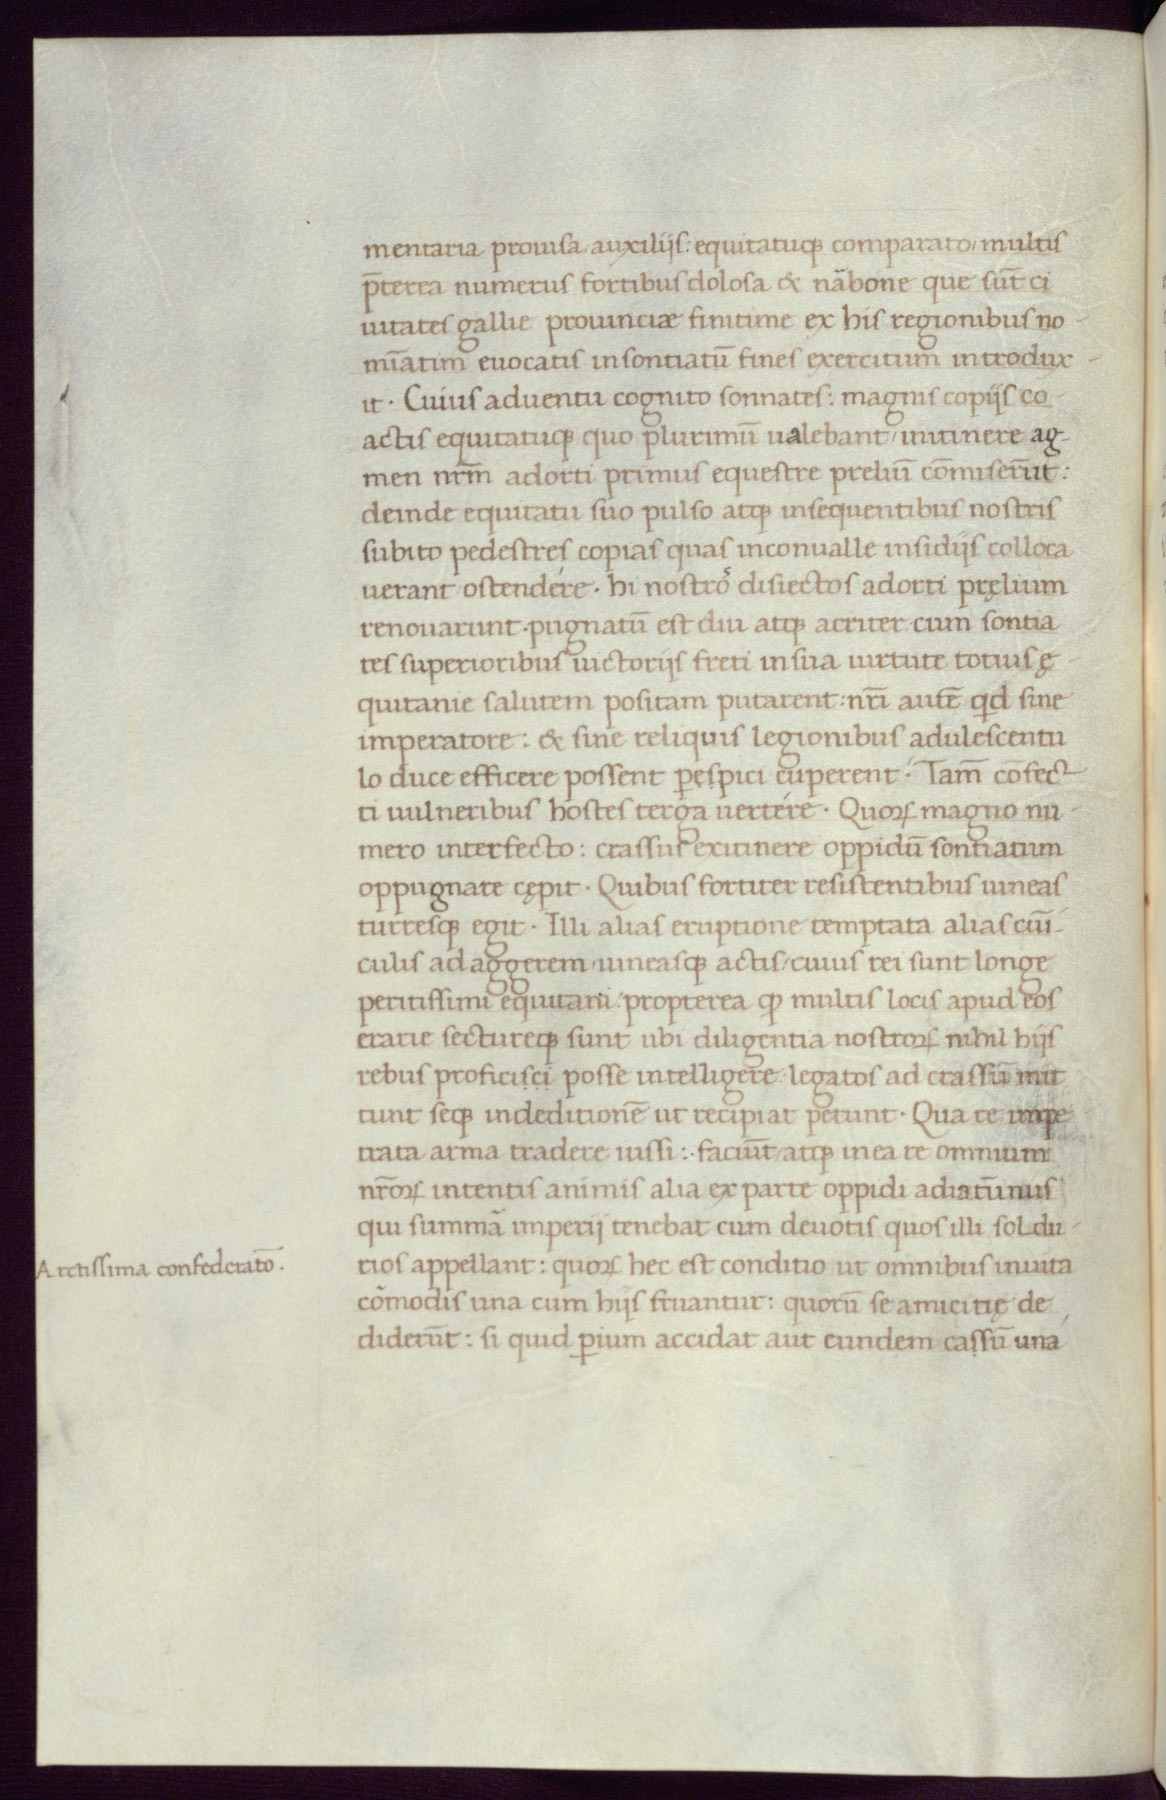 mentaria prouisa auxilijs: equitatuqꝫ comparato multis
p̄terea numerus fortibus dolosa & nãbone que sũt ci
uitates gallie prouinciæ finitime ex his regionibus no-
mĩatim euocatis in sontiatũ fines exercitum introdux-
it. Cuius aduentu cognito sonnates: magnis copijs co-
actis equitatuqꝫ quo plurimũ ualebant initinere ag-
men nr̃m adorti primus equestre preliũ cõmiser̃ut:
deinde equitatu suo pulso atqꝫ insequentibus nostris
subito pedestres copias quas inconualle insidijs colloca
uerant ostendére. hi nostrõ disiectos adorti pręlium
renouarunt. pugnatũ est diu atqꝫ acriter cum sontia
tes superioribus uictorijs freti in sua uirtute totius ę-
quitanie salutem positam putarent: nr̃i autẽ qd sine
imperatore: & sine reliquis legionibus adulescentu
lo duce efficere possent ꝑęspici cuperent. Tam̃ cõfect-
ti uulneribus hostes terga uertére. Quoꝝ magno nu-
mero interfecto: crassus exitinere oppidũ sontiatium
oppugnare cępit. Quibus fortiter resistentibus uineas
turresqꝫ egit. Illi alias eruptione temptata alias cũi-
culis ad aggerem uineasqꝫ actis cuius rei sunt longe
peritissimi equitani: propterea qꝫ multis locis apud eos
erarie sectureqꝫ sunt ubi diligentia nostroꝝ nihil hijs
rebus proficisci posse intelligere legatos ad crassũ mit
tunt seqꝫ indeditionẽ ut recipiat petunt. Qua re impe
trata arma tradere iussi: faciũt atqꝫ in ea re omnium
nr̃oꝝ intentis animis alia ex parte oppidi adiatũnus
qui summã imperij tenebat cum deuotis quos illi soldu-
rios appellant: quoꝝ hec est conditio ut omnibus inuita
cõmodis una cum hijs fruantur: quorũ se amicitię de
diderũt: si quid ꝑium accidat aut eundem cassũ una
Artissima confederatõ.